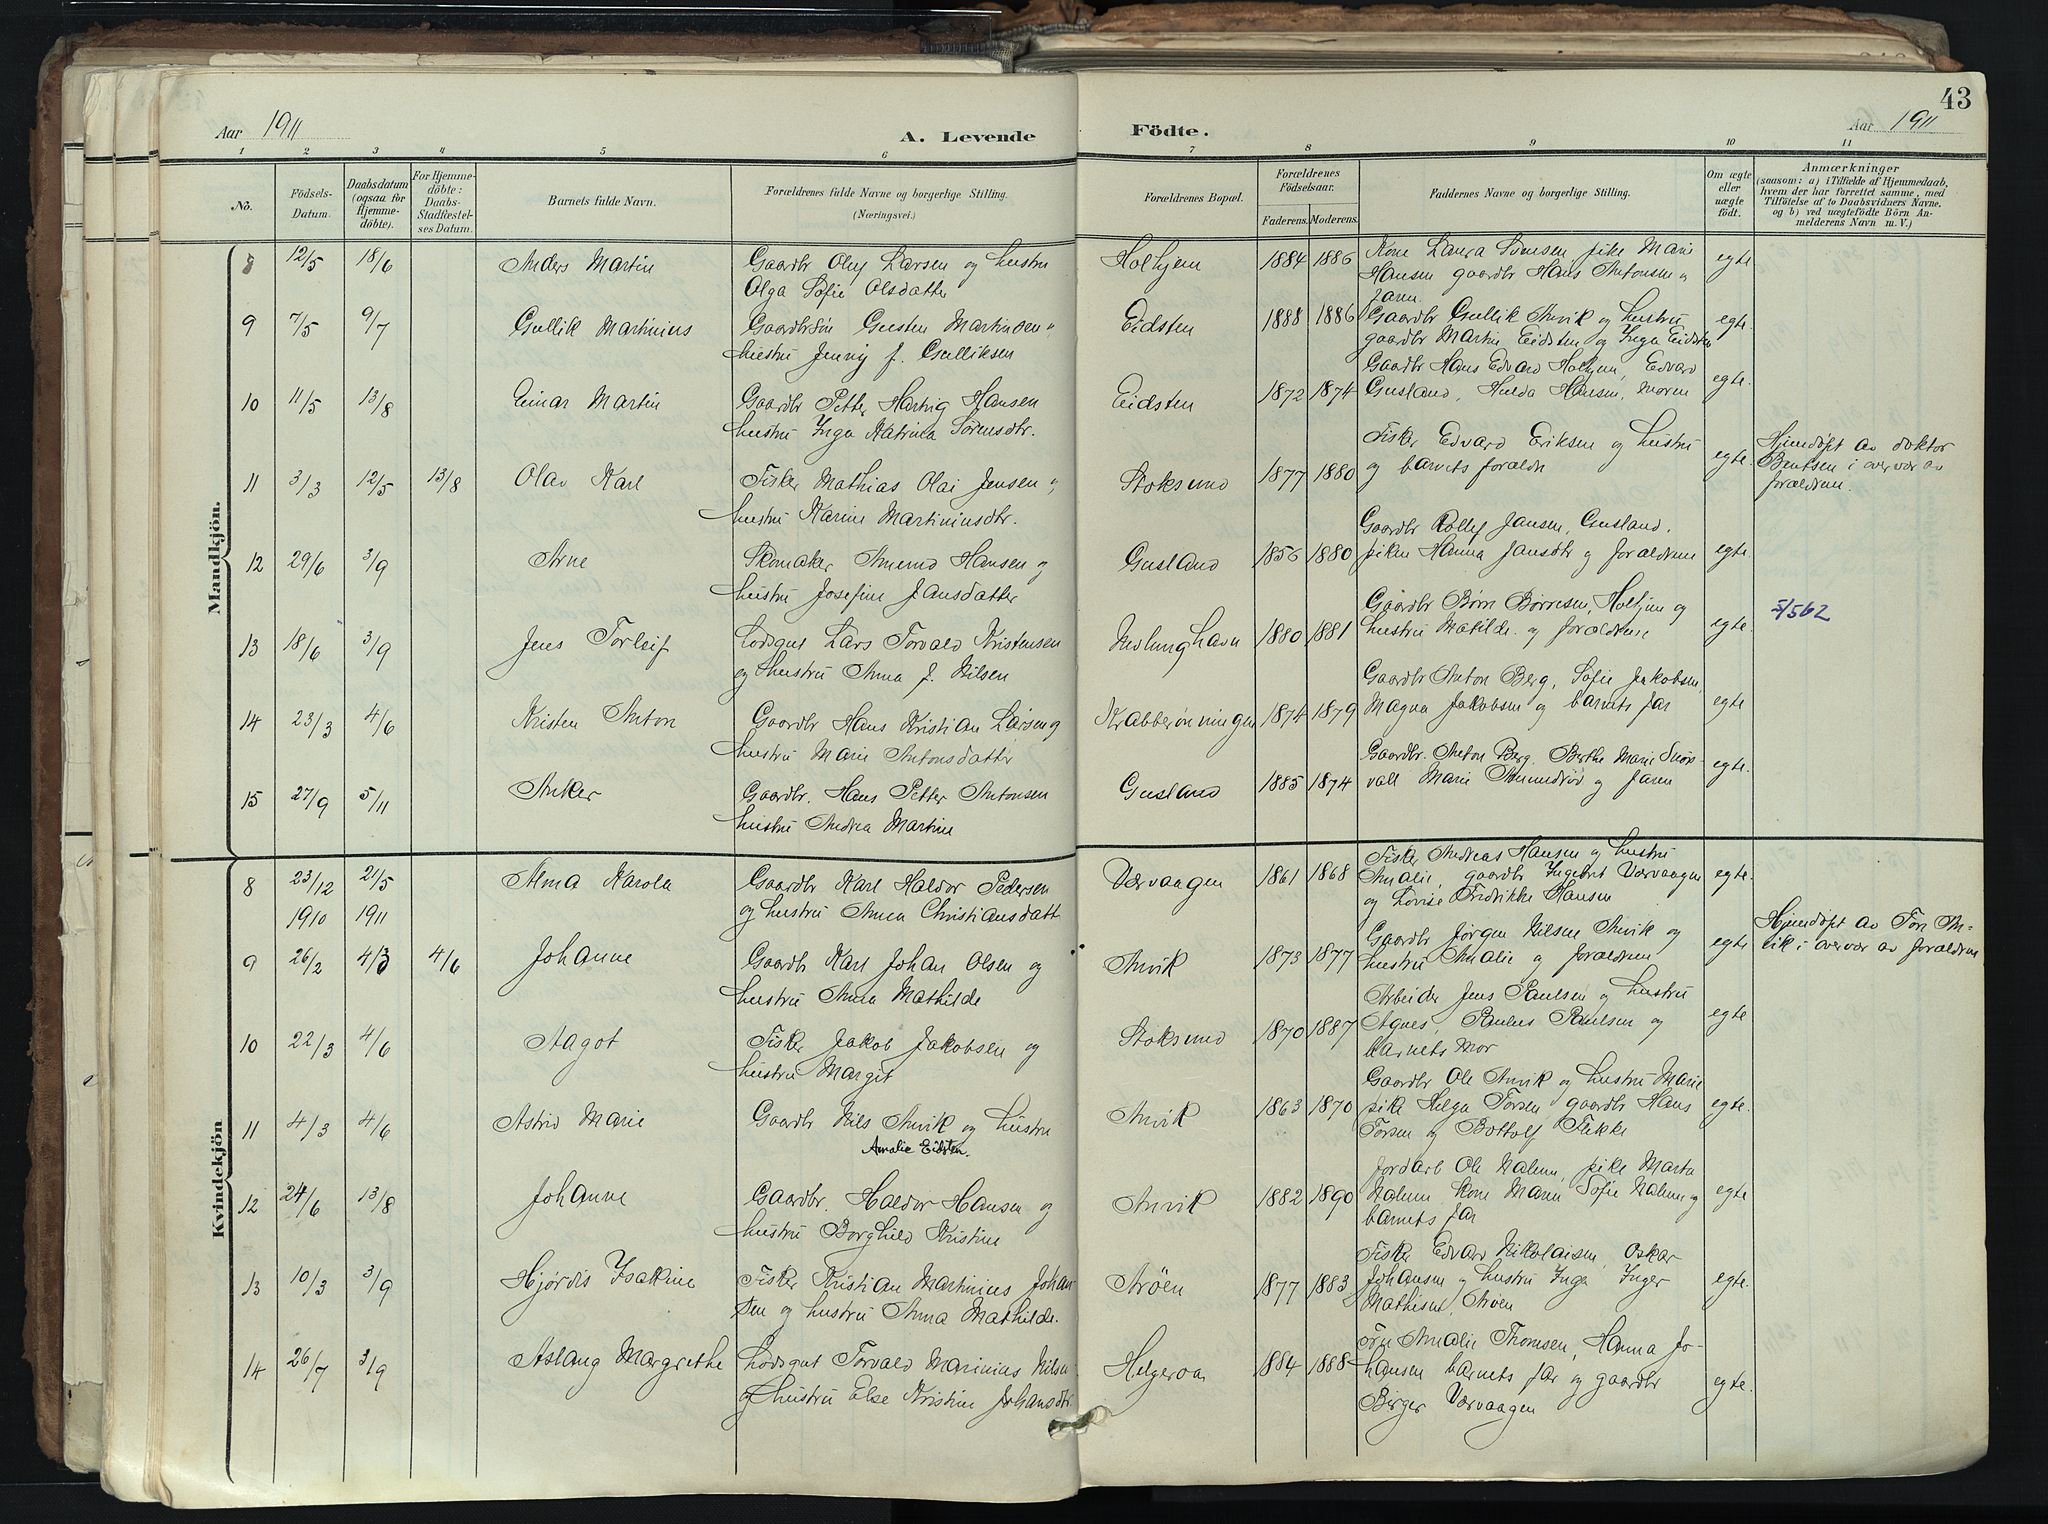 43
Aar 1911
A. Levende Födte.
Aar 1911
1 2 3 4 5 6 7 8 9 10 11
No.
Födsels-Datum.
Daabsdatum (ogsaa for Hjemme-döbte).
For Hjemme-döbte: Daabs-Stadfæstel-ses Datum.
Barnets fulde Navn.
Forældrenes fulde Navne og borgerlige Stilling. (Næringsvei.)
Forældrenes Bopæl.
Forældrenes Födselsaar.
Faderens. Moderens.
Faddernes Navne og borgerlige Stilling.
Om ægte eller uægte födt.
Anmærkninger
(saasom: a) i Tilfælde af Hjemmedaab,
hvem der har forrettet samme, med
Tilföielse af to Daabsvidners Navne,
og b) ved uægtefödte Börn An-
melderens Navn m. V.)
Mandkjön.
8 12/5 18/6 Anders Martin Gaardbr Oluf Larsen og hustru
Olga Sofie Olsdatter
Holhjem 1884 1886 Kone Laura Svensen pike Marie
Hansen gaardbr Hans Antonsen og
faren
egte
9 7/5 9/7 Gullik Martinius Gaardbrsön Gusten Martinsen og
hustru Jenny f. Gulliksen
Eidsten 1888 1886 Gaardbr Gullik Anvik og hustru
gaardbr Martin Eidsten og Inga Eidsten
egte.
10 11/5 13/8 Einar Martin Gaardbr Petter Hartvig Hansen
hustru Inga Katrina Sørensdtr.
Eidsten 1872 1874 Gaardbr Hans Edvard Holhjem, Edvard
Gusland, Hulda Hansen, moren
egte.
11 3/3 12/5 13/8 Olav Karl Fisker Mathias Olai Jensen og
hustru Karine Martiniusdtr.
Stoksund 1877 1880 Fisker Edvard Eriksen og hustru
og barnets foraeldre
egte.
Hjemdøpt av doktor
Bentsen i overvær av
foraeldrene.
12 29/6 3/9 Arne Skomaker Amund Hansen og
hustru Josefine Jansdatter
Gusland 1856 1880 Gaardbr Rolf Jansen, Gusland,
piken Hanna Jansdtr og foraeldrene
egte.
13 18/6 3/9 Jens Torleif Lodsgut Lars Torvald Kristensen
og hustru Anna J. Nilsen
Nevlunghavn 1880 1881 Gaardbr Børre Børresen, Holhjem og
hustru Matilde og foraeldrene
egte.
5/562
14 23/3 4/6 Kristen Anton Gaardbr Hans Kristian Larsen og
hustru Marie Antonsdatter
Krabberønningen 1874 1879 Gaardbr Anton Berg, Sofie Jakobsen,
Magna Jakobsen og barnets far
egte
15 27/9 5/11 Anker Gaardbr. Hans Petter Antonsen
hustru Andrea Martine
Gusland 1885 1874 Gaardbr. Anton Berg, Berthe Marie
Marie og faren
egte.
Kvindekjön
8 23/12 1910 21/5 1911 Alma Karola Gaardbr Karl Haldor Pedersen
og hustru Anna Christiansdatt
Værvaagen 1861 1868 Fisker Andreas Hansen og hustru
Amalie, gaardbr Ingebret Værvaagen
og Lovise Fredrikke Hansen
egte.
9 26/2 4/3 4/6 Johanne Gaardbr Karl Johan Olsen og
hustru Anna Mathilde
Anvik 1873 1877 Gaardbr Jørgen Nilsen Anvik og
hustru Amalie og foraeldrene
egte
Hjemdøpt av Tor An-
vik i overvær av foraeldrene
10 22/3 4/6 Aagot Fisker Jakob Jakobsen og
hustru Margit
Stoksund 1870 1887 Arbeider Jens Paulsen og hustru
Agnes, Paulus Paulsen og
barnets mor
egte
11 4/3 4/6 Astrid Marie Gaardbr Nils Anvik og hustru
Amalie Eidsten.
Anvik 1863 1870 Gaardbr Ole Anvik og hustru Marie
pike Helga Torsen gaardbr Hans
Torsen og Bottolf Flikke
egte.
12 24/6 13/8 Johanne Gaardbr. Haldor Hansen og
hustru Borghild Kristine
Anvik 1882 1890 Jordarb Ole Nalum, pike Marta
Nalum, kone Marie Sofie Nalum og
barnets far
egte
13 10/3 3/9 Hjørdis Isakine Fisker Kristian Martinius Johan-
sen og hustru Anna Mathilde.
Arøen 1877 1883 Fisker Edvard Nikolaisen, Oskar
Johansen og hustru Inga Inger
Mathisen, Arøen
egte.
14 26/7 3/9 Aslaug Margrethe Lodsgut Torvald Marinius Nilsen
og hustru Else Kristine Johansdtr.
Helgeroa 1884 1888 Amalie Thomsen, Hanna Jo-
hansen barnets far og gaardbr
Birger Værvaagen
egte.